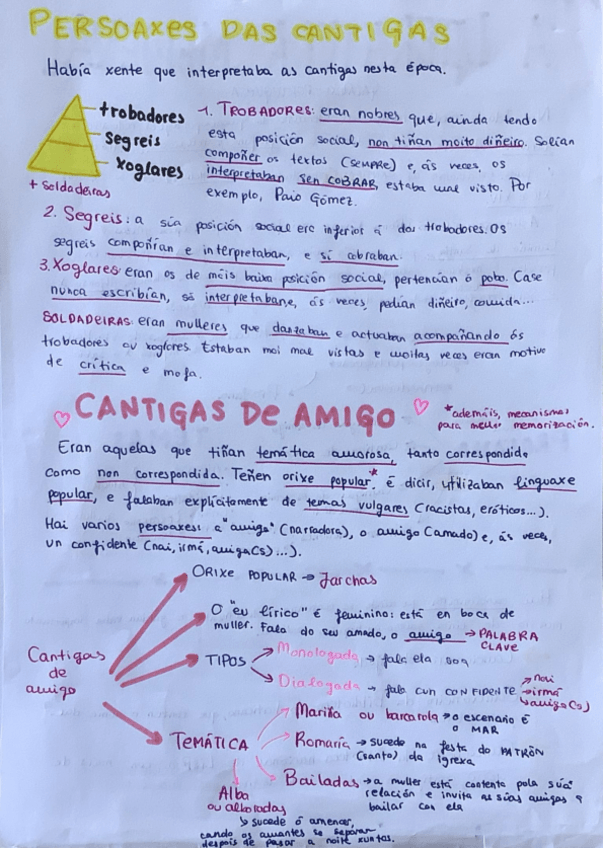 PERSOAXES DAS CANTIGAS
Había xente que interpretaba as cantigas nesta época.
trobadores
segreis
xoglares
+ soldadeiras
1. TROBADORES: eran nobres que, aínda tendo
esta posición social, non tiñan moito diñeiro. Solían
compoñer os textos (SEMPRE) e, ás veces, os
interpretaban SEN COBRAR, estaba mal visto. Por
exemplo, Paio Gómez.
2. Segreis: a súa posición social era inferior á dos trobadores. Os
segreis compoñían e interpretaban, e si cobraban.
3. Xoglares eran os de máis baixa posición social, pertencían ó pobo. Case
nunca escribían, só interpretaban e, ás veces, pedían diñeiro, comida...
SOLDADEIRAS: eran mulleres que danzaban e actuaban acompañando ós
trobadores ou xoglares. Estaban moi mal vistas e moitas veces eran motivo
de crítica e mofa.
CANTIGAS DE AMIGO
*ademáis, mecanismos
para mellor memorización.
Eran aquelas que tiñan temática amorosa, tanto correspondida
como non correspondida. Teñen orixe popular*, é dicir, utilizaban linguaxe
popular, e falaban explícitamente de temas vulgares (racistas, eróticos...).
Hai varios persoaxes: a "amiga" (narradora), o amigo (amado) e, ás veces,
un confidente (nai, irmá, amiga(s)...).
Cantigas
de
amigo
ORIXE POPULAR → Jarchas
O "eu lírico" é feminino: está en boca de
muller. Fala do seu amado, o amigo → PALABRA
CLAVE
TIPOS
Monologada → fala ela soa
Dialogada → fala cun CONFIDENTE
→ nai
→ irmá
→ amiga(s)
TEMÁTICA
Mariña ou barcarola → o escenario é
o MAR
Romaría → sucede na festa do PATRÓN
(santo) da igrexa
Bailadas → a muller está contenta pola súa
relación e invita as súas amigas a
bailar con ela
Alba
ou alboradas
↳ sucede ó amencer,
cando os amantes se separan
despois de pasar a noite xuntos.